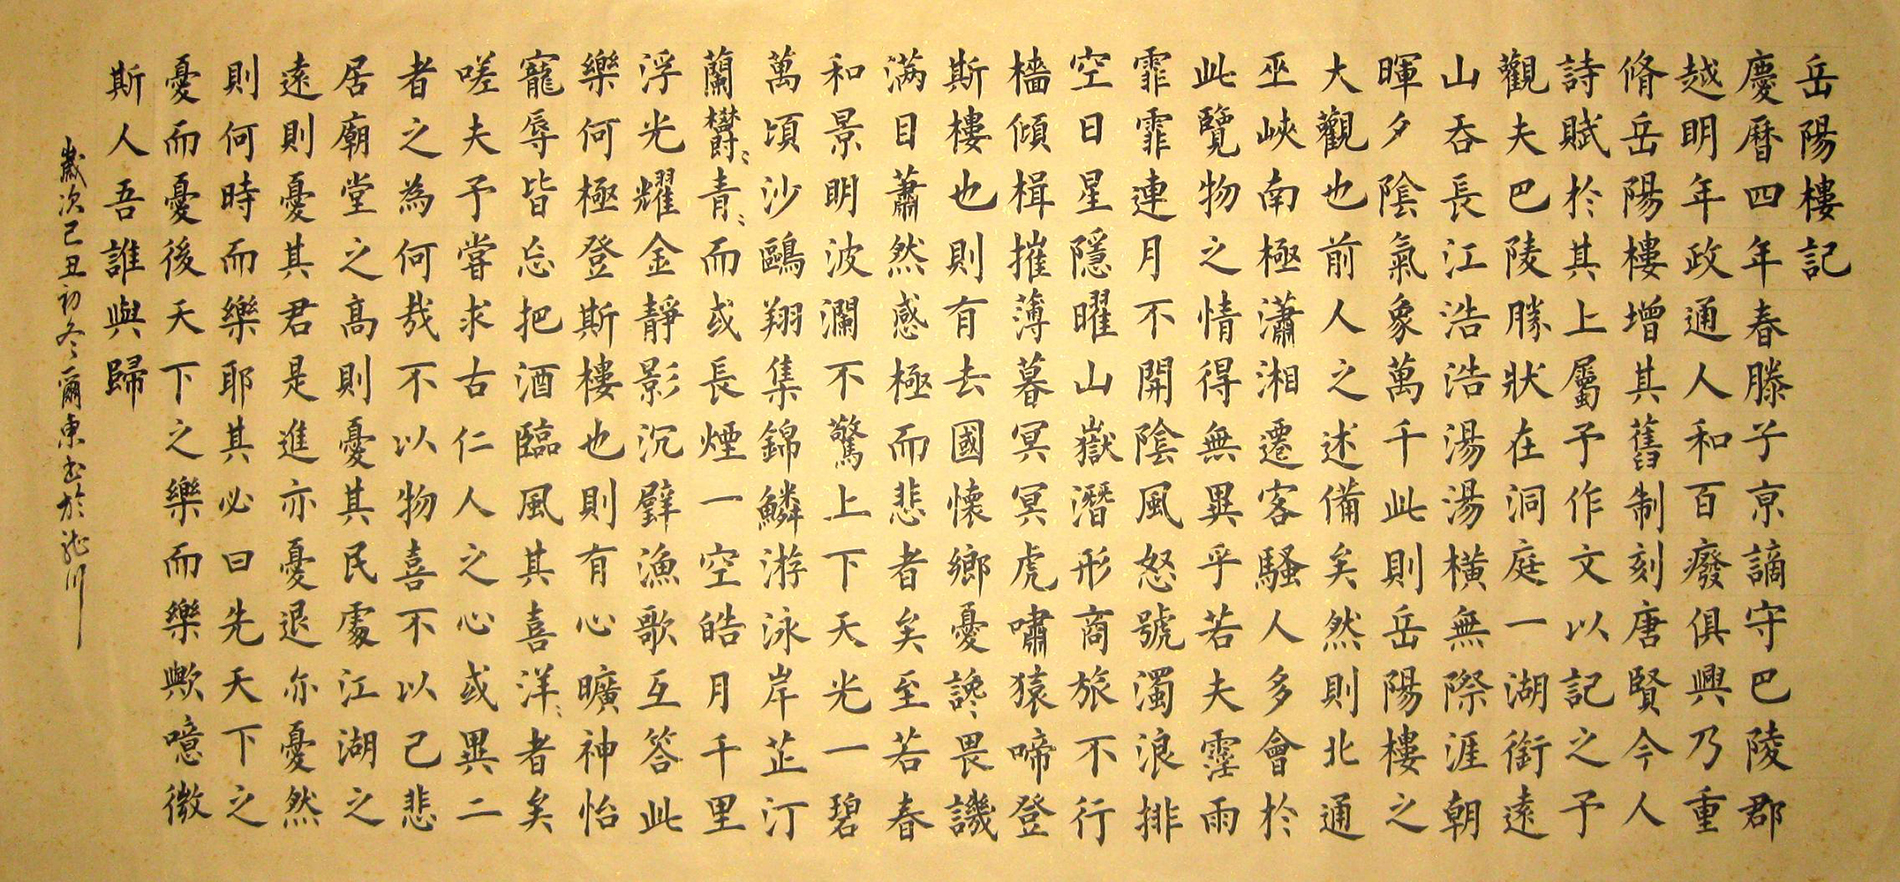 岳陽樓記
慶曆四年春滕子京謫守巴陵郡
越明年政通人和百廢俱興乃重
脩岳陽樓增其舊制刻唐賢今人
詩賦於其上屬予作文以記之予
觀夫巴陵勝狀在洞庭一湖銜遠
山吞長江浩浩湯湯橫無際涯朝
暉夕陰氣象萬千此則岳陽樓之
大觀也前人之述備矣然則北通
巫峽南極瀟湘遷客騷人多會於
此覽物之情得無異乎若夫霪雨
霏霏連月不開陰風怒號濁浪排
空日星隱曜山嶽潛形商旅不行
檣傾楫摧薄暮冥冥虎嘯猿啼登
斯樓也則有去國懷鄉憂讒畏譏
滿目蕭然感極而悲者矣至若春
和景明波瀾不驚上下天光一碧
萬頃沙鷗翔集錦鱗游泳岸芷汀
蘭鬱〻青〻而或長煙一空皓月千里
浮光耀金靜影沉璧漁歌互答此
樂何極登斯樓也則有心曠神怡
寵辱皆忘把酒臨風其喜洋〻者矣
嗟夫予嘗求古仁人之心或異二
者之為何哉不以物喜不以己悲
居廟堂之高則憂其民處江湖之
遠則憂其君是進亦憂退亦憂然
則何時而樂耶其必曰先天下之
憂而憂後天下之樂而樂歟噫微
斯人吾誰與歸
歲次己丑初冬爾東書於川